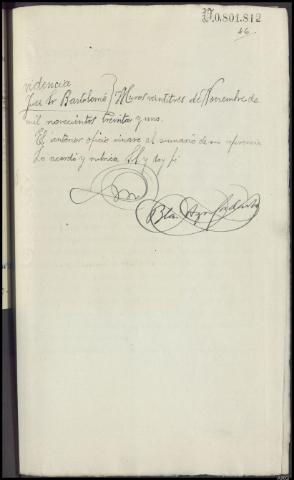 V.0.801.812
46.
videncia
Juez Sr Bartolomé } Muros veintitres de Noviembre de
mil novecientos treinta y uno.
El anterior oficio unase al sumario de su referencia
Lo acordó y rubrica S.S. y doy fé